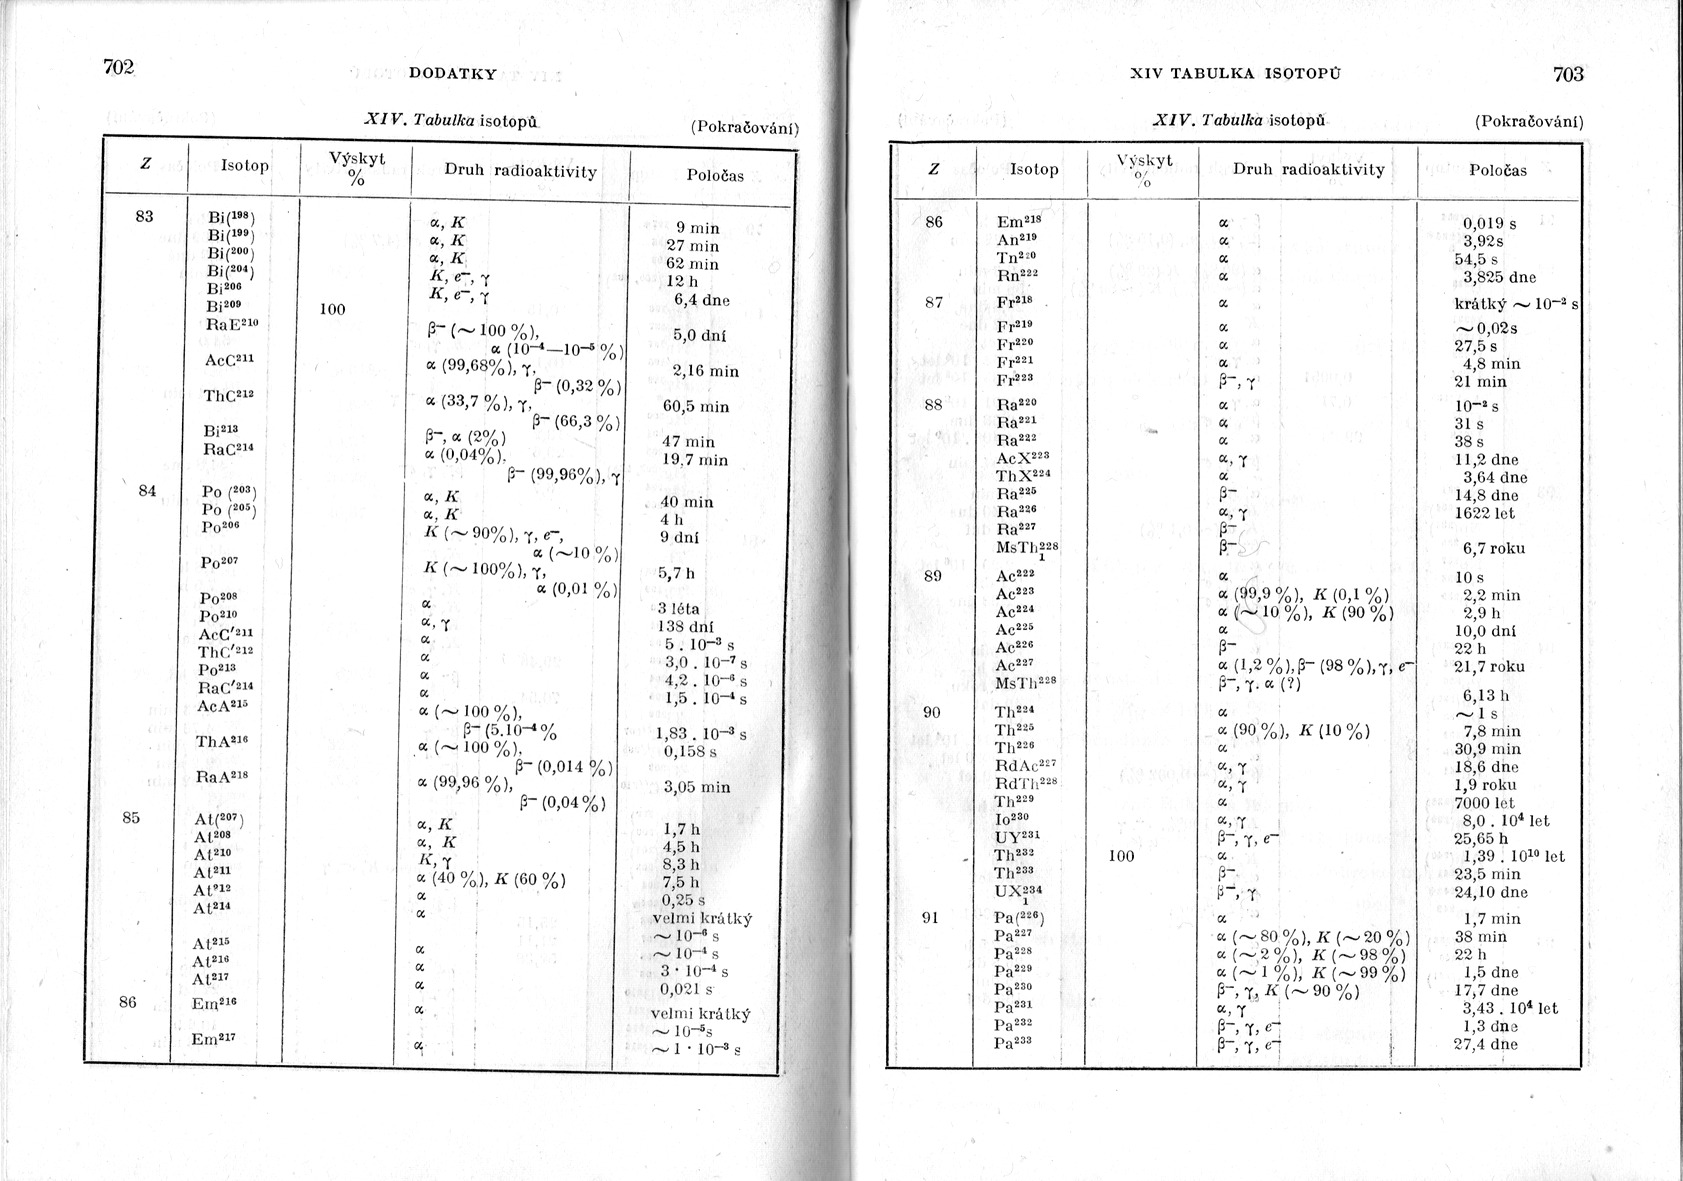 702
DODATKY
XIV. Tabulka isotopů
(Pokračování)
Z Isotop Výskyt % Druh radioaktivity Poločas
83 Bi(¹⁹⁸) α, K 9 min
Bi(¹⁹⁹) α, K 27 min
Bi(²⁰⁰) α, K 62 min
Bi(²⁰⁴) K, e⁻, γ 12 h
Bi²⁰⁶ K, e⁻, γ 6,4 dne
Bi²⁰⁹ 100
RaE²¹⁰ β⁻ (∼ 100 %), 5,0 dní
α (10⁻⁴—10⁻⁵ %)
AcC²¹¹ α (99,68%), γ, 2,16 min
β⁻ (0,32 %)
ThC²¹² α (33,7 %), γ, 60,5 min
β⁻ (66,3 %)
Bi²¹³ β⁻, α (2%) 47 min
RaC²¹⁴ α (0,04%), 19,7 min
β⁻ (99,96%), γ
84 Po (²⁰³) α, K 40 min
Po (²⁰⁵) α, K 4 h
Po²⁰⁶ K (∼ 90%), γ, e⁻, 9 dní
α (∼10 %)
Po²⁰⁷ K (∼ 100%), γ, 5,7 h
α (0,01 %)
Po²⁰⁸ α 3 léta
Po²¹⁰ α, γ 138 dní
AcC′²¹¹ α 5 . 10⁻³ s
ThC′²¹² α 3,0 . 10⁻⁷ s
Po²¹³ α 4,2 . 10⁻⁶ s
RaC′²¹⁴ α 1,5 . 10⁻⁴ s
AcA²¹⁵ α (∼ 100 %),
β⁻ (5.10⁻⁴ % 1,83 . 10⁻³ s
ThA²¹⁶ α (∼ 100 %), 0,158 s
β⁻ (0,014 %)
RaA²¹⁸ α (99,96 %), 3,05 min
β⁻ (0,04 %)
85 At(²⁰⁷) α, K 1,7 h
At²⁰⁸ α, K 4,5 h
At²¹⁰ K, γ 8,3 h
At²¹¹ α (40 %), K (60 %) 7,5 h
At²¹² α 0,25 s
At²¹⁴ α velmi krátký
∼ 10⁻⁶ s
At²¹⁵ α ∼ 10⁻⁴ s
At²¹⁶ α 3 · 10⁻⁴ s
At²¹⁷ α 0,021 s
86 Em²¹⁶ α velmi krátký
∼ 10⁻⁵s
Em²¹⁷ α ∼ 1 · 10⁻³ s
XIV TABULKA ISOTOPŮ
703
XIV. Tabulka isotopů
(Pokračování)
Z Isotop Výskyt % Druh radioaktivity Poločas
86 Em²¹⁸ α 0,019 s
An²¹⁹ α 3,92s
Tn²²⁰ α 54,5 s
Rn²²² α 3,825 dne
87 Fr²¹⁸ α krátký ∼ 10⁻² s
Fr²¹⁹ α ∼ 0,02s
Fr²²⁰ α 27,5 s
Fr²²¹ α 4,8 min
Fr²²³ β⁻, γ 21 min
88 Ra²²⁰ α 10⁻² s
Ra²²¹ α 31 s
Ra²²² α 38 s
AcX²²³ α, γ 11,2 dne
ThX²²⁴ α 3,64 dne
Ra²²⁵ β⁻ 14,8 dne
Ra²²⁶ α, γ 1622 let
Ra²²⁷ β⁻
MsTh₁²²⁸ β⁻ 6,7 roku
89 Ac²²² α 10 s
Ac²²³ α (99,9 %), K (0,1 %) 2,2 min
Ac²²⁴ α (∼ 10 %), K (90 %) 2,9 h
Ac²²⁵ α 10,0 dní
Ac²²⁶ β⁻ 22 h
Ac²²⁷ α (1,2 %), β⁻ (98 %), γ, e⁻ 21,7 roku
MsTh²²⁸ β⁻, γ. α (?) 6,13 h
90 Th²²⁴ α ∼ 1 s
Th²²⁵ α (90 %), K (10 %) 7,8 min
Th²²⁶ α 30,9 min
RdAc²²⁷ α, γ 18,6 dne
RdTh²²⁸ α, γ 1,9 roku
Th²²⁹ α 7000 let
Io²³⁰ α, γ 8,0 . 10⁴ let
UY²³¹ β⁻, γ, e⁻ 25,65 h
Th²³² 100 α 1,39 . 10¹⁰ let
Th²³³ β⁻ 23,5 min
UX₁²³⁴ β⁻, γ 24,10 dne
91 Pa(²²⁶) α 1,7 min
Pa²²⁷ α (∼ 80 %), K (∼ 20 %) 38 min
Pa²²⁸ α (∼ 2 %), K (∼ 98 %) 22 h
Pa²²⁹ α (∼ 1 %), K (∼ 99 %) 1,5 dne
Pa²³⁰ β⁻, γ, K (∼ 90 %) 17,7 dne
Pa²³¹ α, γ 3,43 . 10⁴ let
Pa²³² β⁻, γ, e⁻ 1,3 dne
Pa²³³ β⁻, γ, e⁻ 27,4 dne